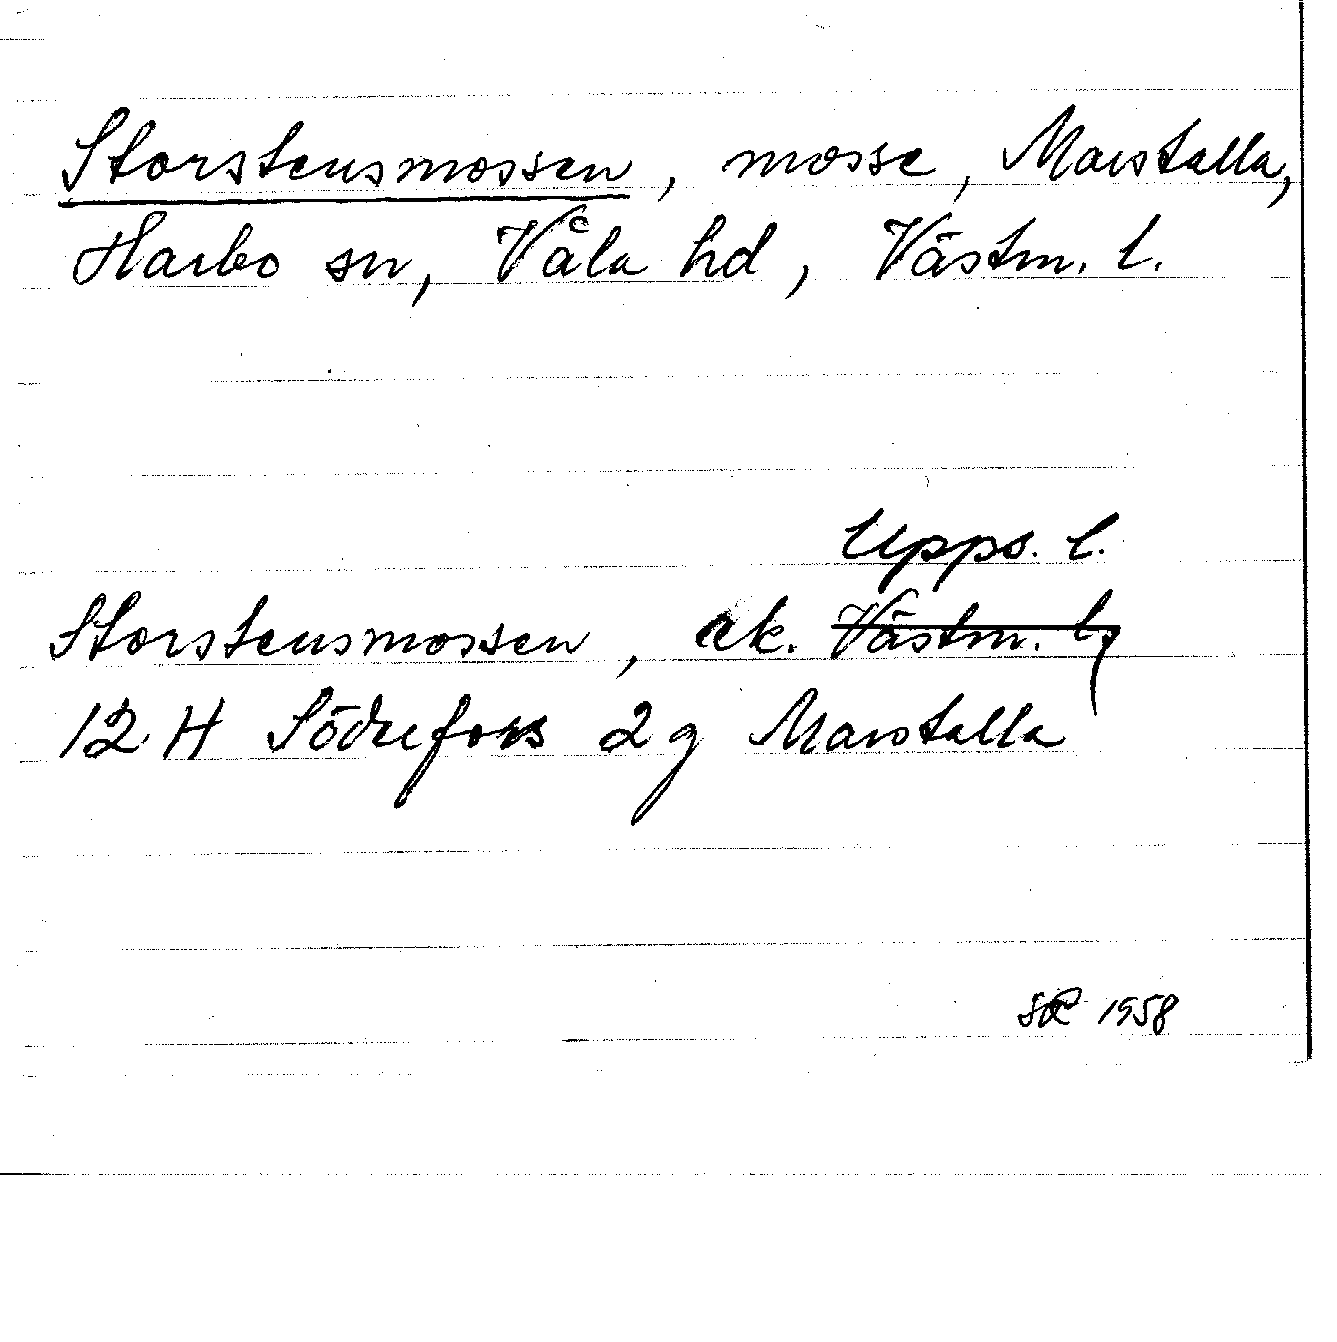 Storstensmossen, mosse, Marstalla,
Harbo sn, Våla hd, Västm. l.
Upps. l.
Storstensmossen, ek. Västm. l,
12 H Söderfors 2 g Marstalla
SR 1958